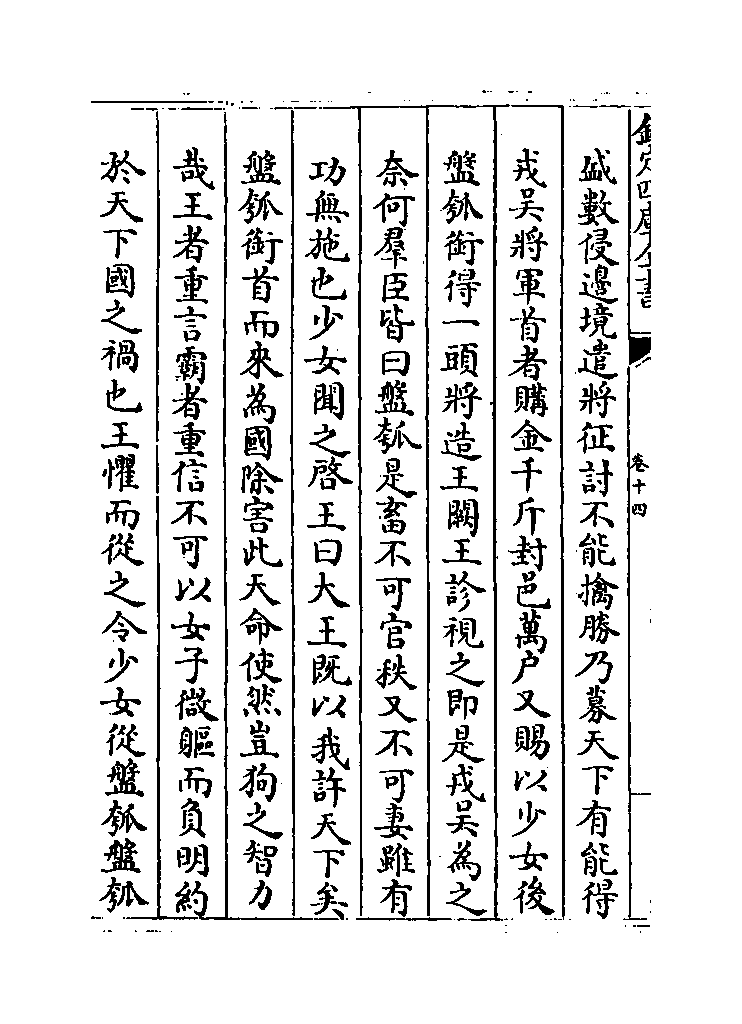 欽定四庫全書
卷十四
盛數侵邊境遣將征討不能擒勝乃募天下有能得
戎吴將軍首者購金千斤封邑萬户又賜以少女後
盤瓠銜得一頭將造王闕王診視之即是戎吴為之
奈何羣臣皆曰盤瓠是畜不可官秩又不可妻雖有
功無施也少女聞之啓王曰大王既以我許天下矣
盤瓠銜首而來為國除害此天命使然豈狗之智力
哉王者重言霸者重信不可以女子微軀而負明約
於天下國之禍也王懼而從之令少女從盤瓠盤瓠